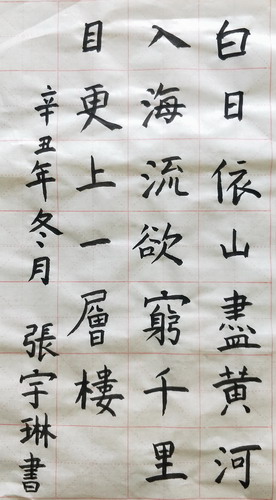 白日依山盡黄河
入海流欲窮千里
目更上一層樓
辛丑年冬月 張宇琳書